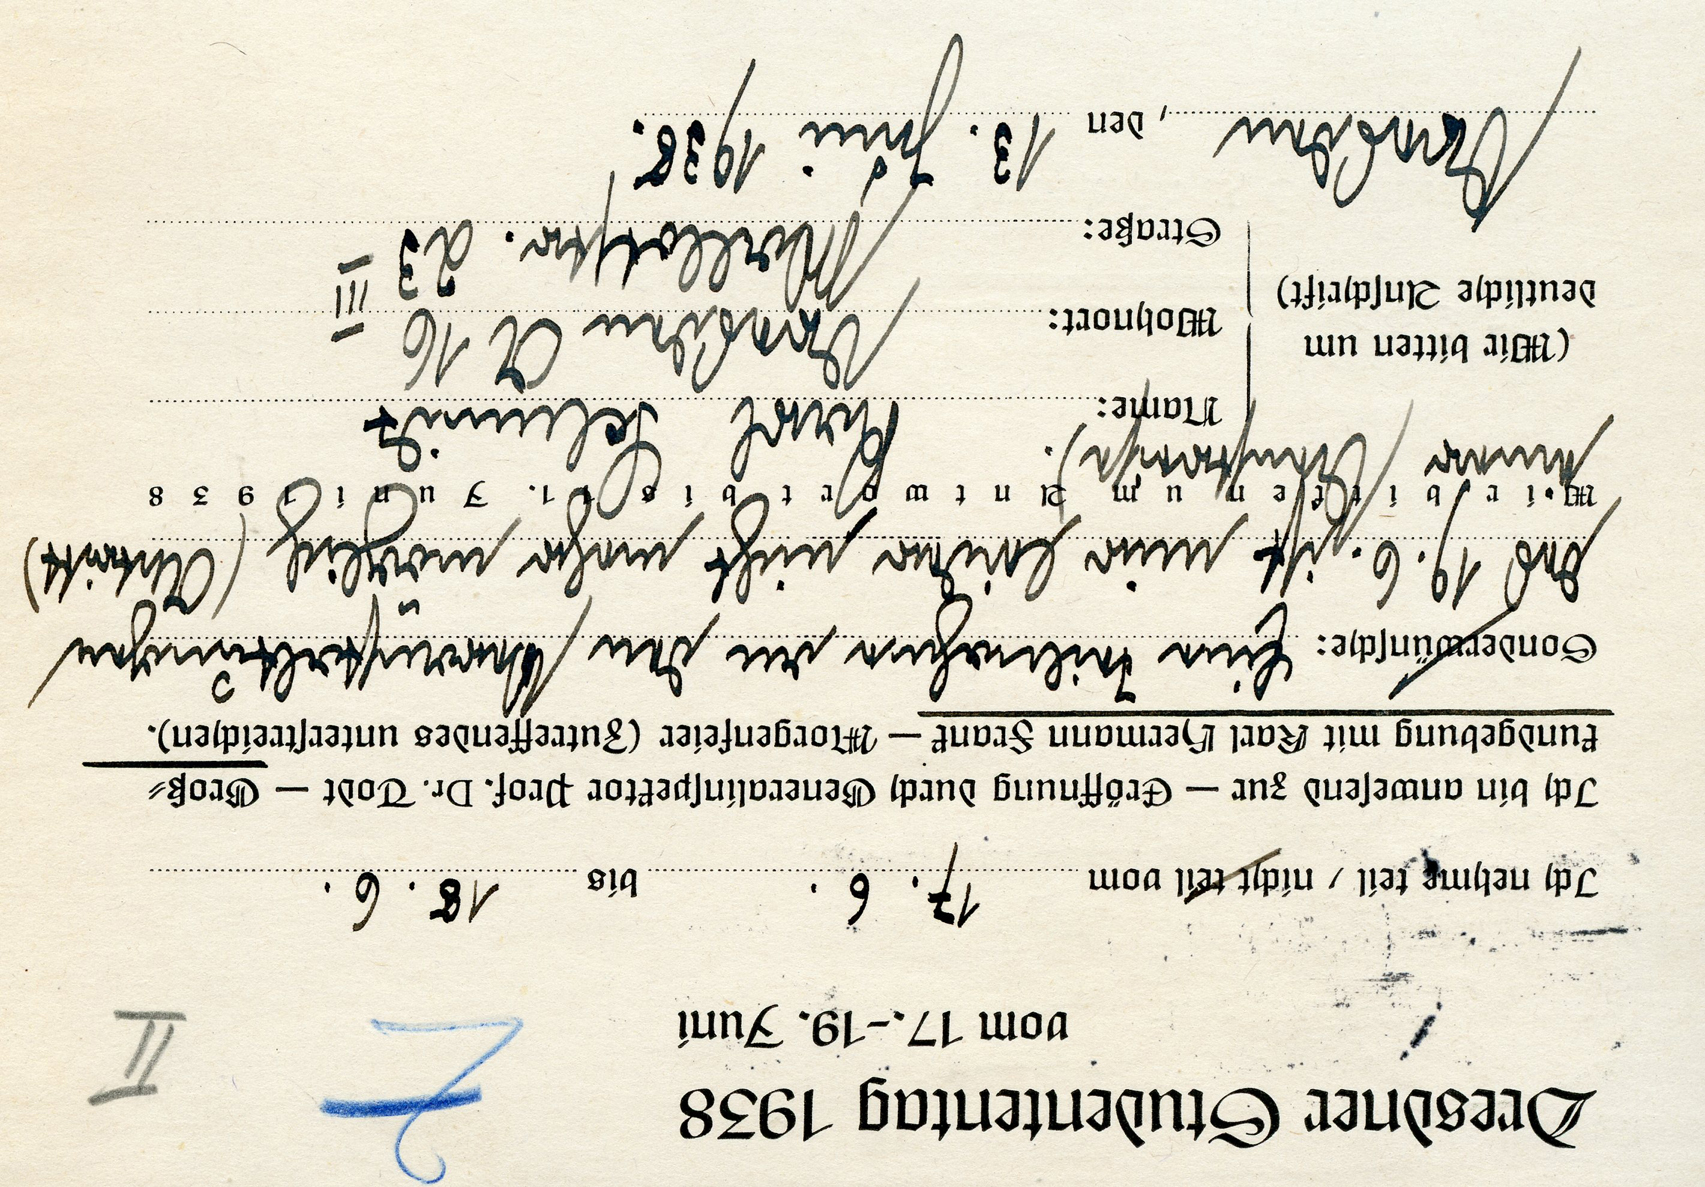 Dresdner Studententag 1938
2 II
vom 17.-19. Juni
Ich nehme teil / nicht teil vom 17. 6. bis 18. 6.
Ich bin anwesend zur — Eröffnung durch Generalinspektor Prof. Dr. Todt — Groß-
kundgebung mit Karl Hermann Frank — Morgenfeier (Zutreffendes unterstreichen).
Sonderwünsche: Eine Teilnahme an den Veranstaltungen
des 19. 6. ist mir leider nicht mehr möglich (Antritt
Wir bitten um Antwort bis 1. Juni 1938
meiner).
Name: Schmidt
(Wir bitten um
Wohnort: Dresden A 16
deutliche Anschrift)
Straße: 23 III
Dresden, den 13. Juni 1938.